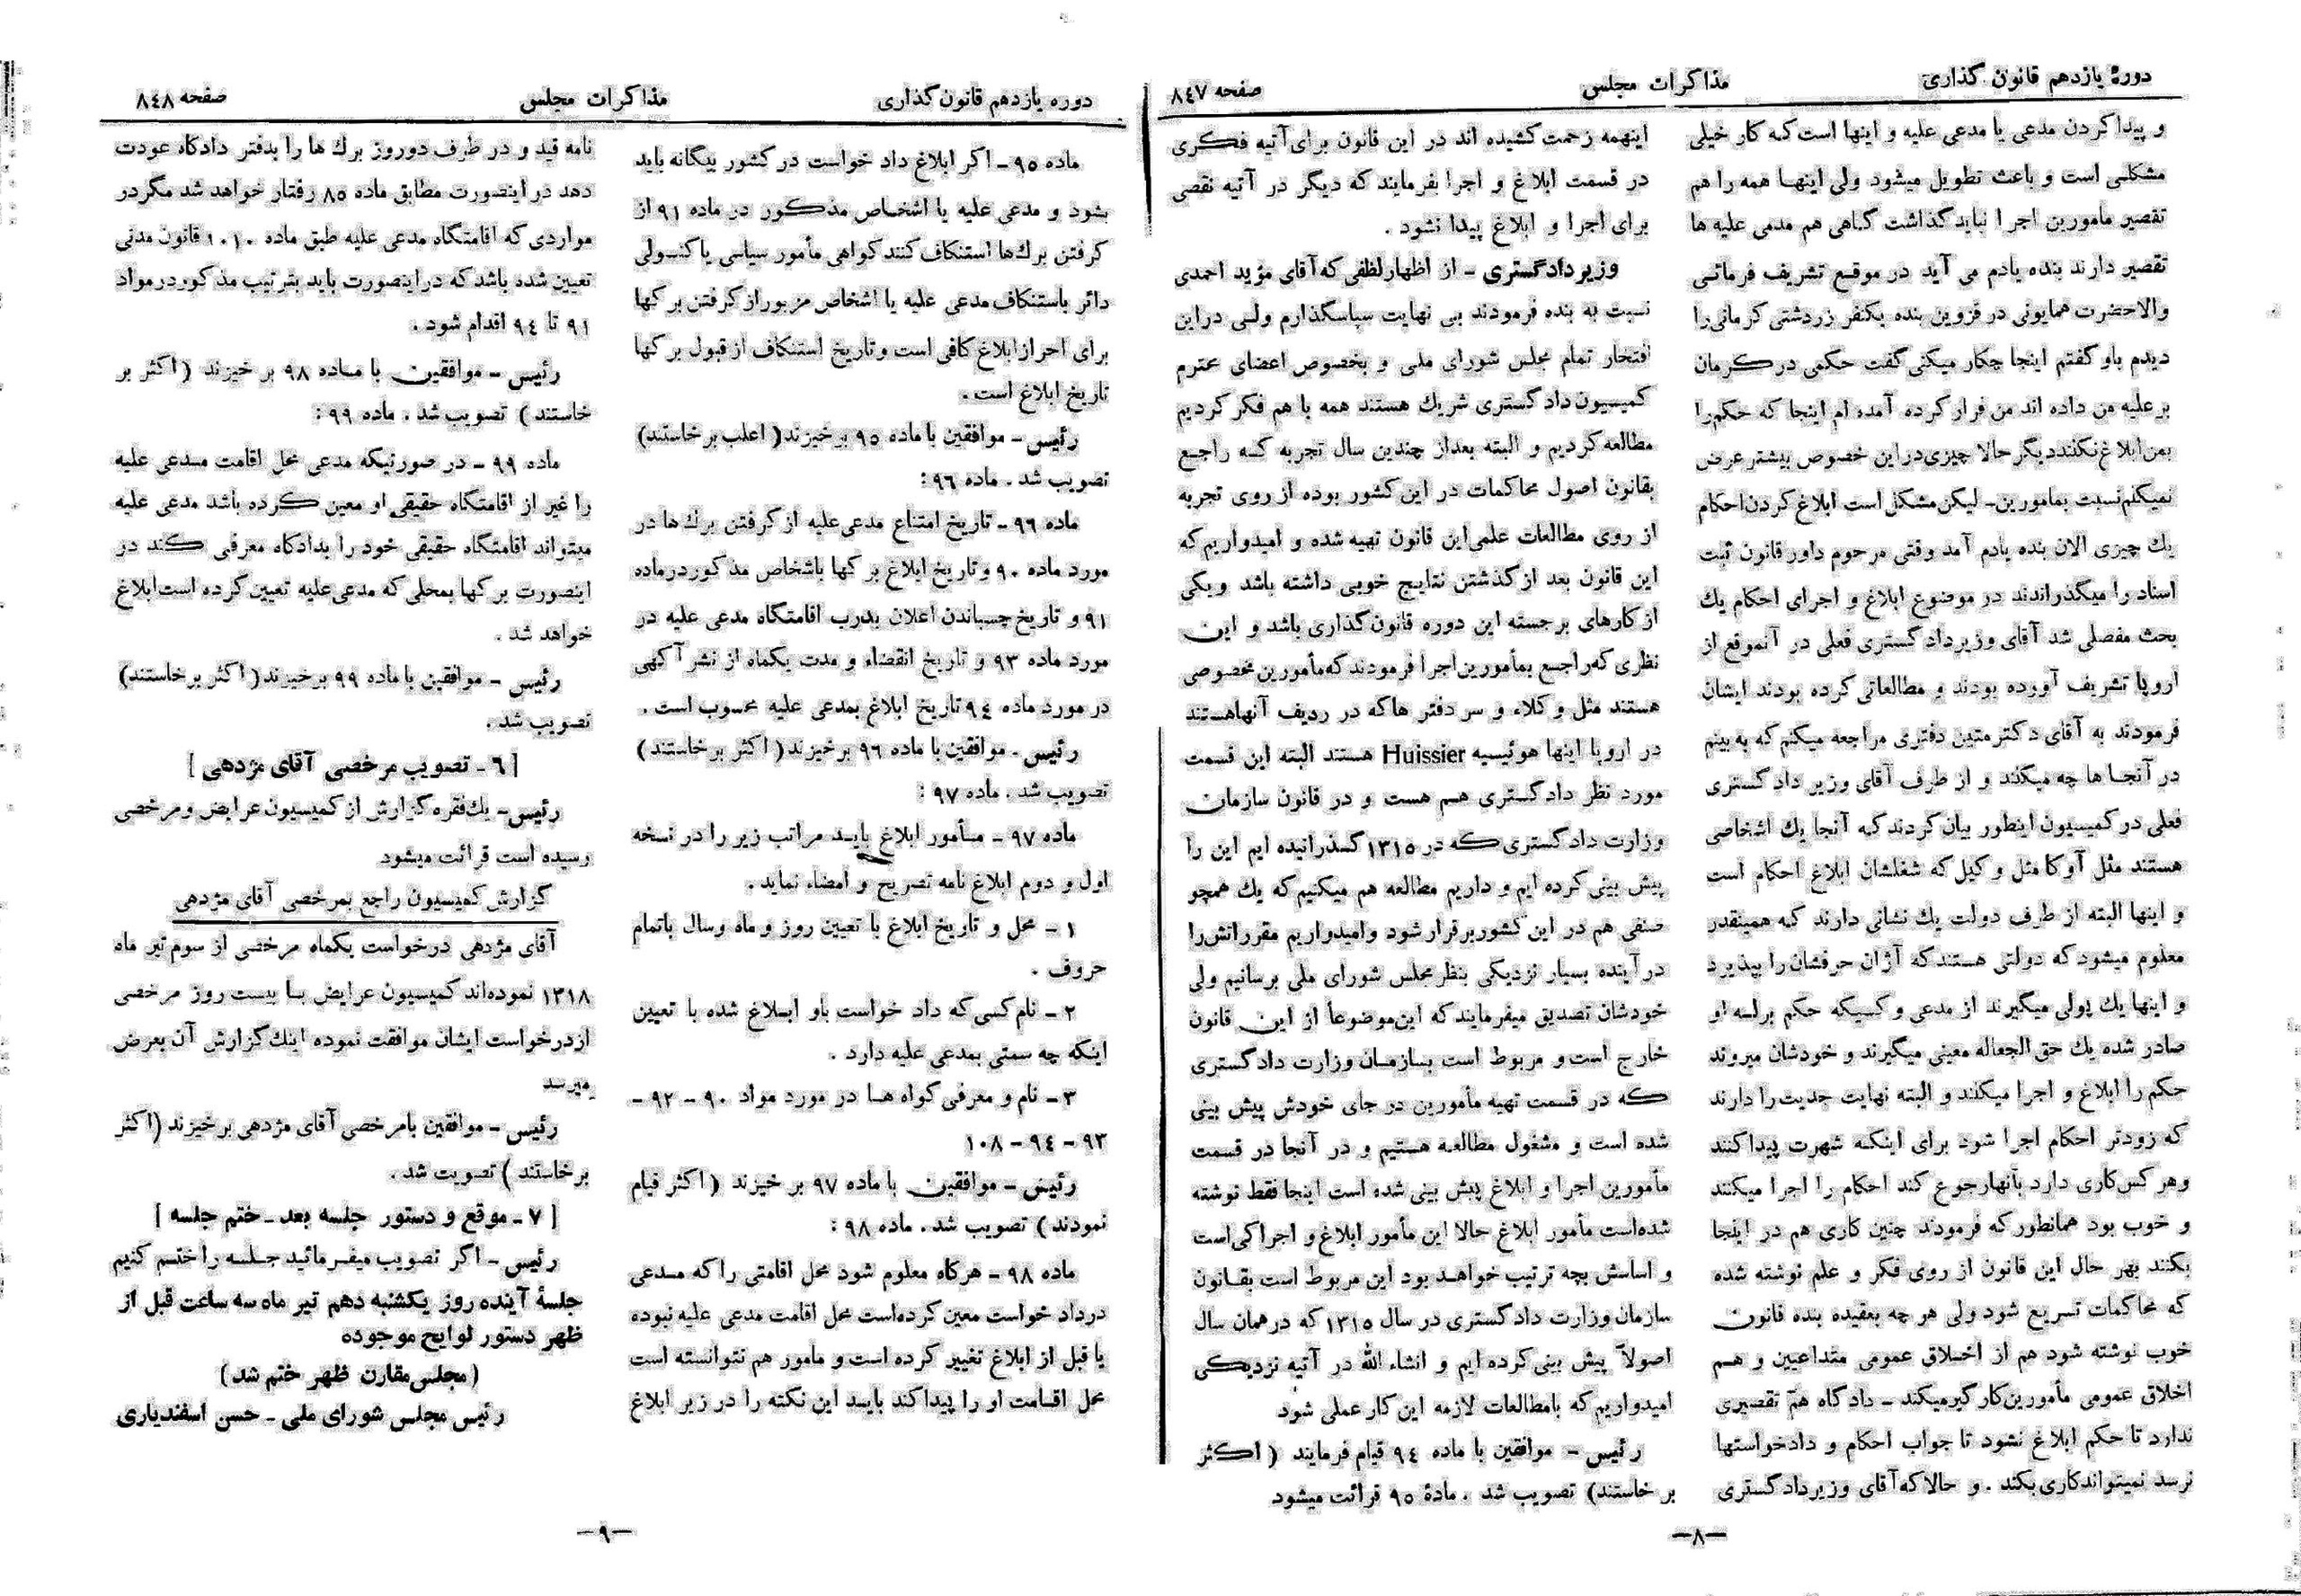 دورهٔ یازدهم قانون گذاری
مذاکرات مجلس
صفحه ۸٤۷
و پیدا کردن مدعی یا مدعی علیه و اینها است که کار خیلی
مشکلی است و باعث تطویل میشود ولی اینها همه را هم
تقصیر مامورین اجرا نباید گذاشت گاهی هم مدعی علیه ها
تقصیر دارند بنده یادم می آید در موقع تشریف فرمائی
والاحضرت همایونی در قزوین بنده یکنفر زردشتی کرمانی را
دیدم باو گفتم اینجا چکار میکنی گفت حکمی در کرمان
بر علیه من داده اند من فرار کرده آمده ام اینجا که حکم را
بمن ابلاغ نکنند دیگر حالا چیزی در این خصوص بیشتر عرض
نمیکنم نسبت بمامورین - لیکن مشکل است ابلاغ کردن احکام
یك چیزی الان بنده یادم آمد وقتی مرحوم داور قانون ثبت
اسناد را میگذراندند در موضوع ابلاغ و اجرای احکام یك
بحث مفصلی شد آقای وزیر دادگستری فعلی در آنموقع از
اروپا تشریف آورده بودند و مطالعاتی کرده بودند ایشان
فرمودند به آقای دکتر متین دفتری مراجعه میکنم که به بینم
در آنجا ها چه میکنند و از طرف آقای وزیر دادگستری
فعلی در کمیسیون اینطور بیان کردند که آنجا یك اشخاصی
هستند مثل آوکا مثل وکیل که شغلشان ابلاغ احکام است
و اینها البته از طرف دولت یك نشانی دارند که همینقدر
معلوم میشود که دولتی هستند که آژان حرفشان را بپذیرد
و اینها یك پولی میگیرند از مدعی و کسیکه حکم بر له او
صادر شده یك حق الجعاله معینی میگیرند و خودشان میروند
حکم را ابلاغ و اجرا میکنند و البته نهایت جدیت را دارند
که زودتر احکام اجرا شود برای اینکه شهرت پیدا کنند
و هر کس کاری دارد بآنها رجوع کند احکام را اجرا میکنند
و خوب بود همانطور که فرمودند چنین کاری هم در اینجا
بکنند بهر حال این قانون از روی فکر و علم نوشته شده
که محاکمات تسریع شود ولی هر چه بعقیده بنده قانون
خوب نوشته شود هم از اخلاق عمومی متداعیین و هم
اخلاق عمومی مأمورین کار گیر میکند - دادگاه هم تقصیری
ندارد تا حکم ابلاغ نشود تا جواب احکام و دادخواستها
نرسد نمیتواند کاری بکند . و حالا که آقای وزیر دادگستری
اینهمه زحمت کشیده اند در این قانون برای آتیه فکری
در قسمت ابلاغ و اجرا بفرمایند که دیگر در آتیه نقصی
برای اجرا و ابلاغ پیدا نشود .
وزیر دادگستری - از اظهار لطفی که آقای مؤید احمدی
نسبت به بنده فرمودند بی نهایت سپاسگذارم ولی در این
افتخار تمام مجلس شورای ملی و بخصوص اعضای محترم
کمیسیون دادگستری شریك هستند همه با هم فکر کردیم
مطالعه کردیم و البته بعد از چندین سال تجربه که راجع
بقانون اصول محاکمات در این کشور بوده از روی تجربه
از روی مطالعات علمی این قانون تهیه شده و امیدواریم که
این قانون بعد از گذشتن نتایج خوبی داشته باشد و یکی
از کارهای برجسته این دوره قانون گذاری باشد و این
نظری که راجع بمأمورین اجرا فرمودند که مأمورین مخصوصی
هستند مثل وکلاء و سر دفتر ها که در ردیف آنها هستند
در اروپا اینها هوئیسیه Huissier هستند البته این قسمت
مورد نظر دادگستری هم هست و در قانون سازمان
وزارت دادگستری که در ۱۳۱٥ گذرانیده ایم این را
پیش بینی کرده ایم و داریم مطالعه هم میکنیم که یك همچو
صنفی هم در این کشور برقرار شود و امیدواریم مقرراتش را
در آینده بسیار نزدیکی بنظر مجلس شورای ملی برسانیم ولی
خودشان تصدیق میفرمایند که این موضوعاً از این قانون
خارج است و مربوط است بسازمان وزارت دادگستری
که در قسمت تهیه مأمورین در جای خودش پیش بینی
شده است و مشغول مطالعه هستیم و در آنجا در قسمت
مأمورین اجرا و ابلاغ پیش بینی شده است اینجا فقط نوشته
شده است مأمور ابلاغ حالا این مأمور ابلاغ و اجرا کی است
و اساسش بچه ترتیب خواهد بود این مربوط است بقانون
سازمان وزارت دادگستری در سال ۱۳۱٥ که در همان سال
اصولاً پیش بینی کرده ایم و انشاء الله در آتیه نزدیکی
امیدواریم که بامطالعات لازمه این کار عملی شود
رئیس - موافقین با ماده ۹٤ قیام فرمایند ( اکثر
بر خاستند) تصویب شد . مادهٔ ۹٥ قرائت میشود
—۸—
دوره یازدهم قانون گذاری
مذاکرات مجلس
صفحه ۸٤۸
ماده ۹٥ - اگر ابلاغ داد خواست در کشور بیگانه باید
بشود و مدعی علیه یا اشخاص مذکور در ماده ۹۱ از
گرفتن برك ها استنکاف کنند گواهی مأمور سیاسی یا کنسولی
دائر باستنکاف مدعی علیه یا اشخاص مزبور از گرفتن برگها
برای احراز ابلاغ کافی است و تاریخ استنکاف از قبول برگها
تاریخ ابلاغ است .
رئیس - موافقین با ماده ۹٥ برخیزند ( اغلب برخاستند)
تصویب شد . ماده ۹٦ :
ماده ۹٦ - تاریخ امتناع مدعی علیه از گرفتن برك ها در
مورد ماده ۹۰ و تاریخ ابلاغ برگها باشخاص مذکور در ماده
۹۱ و تاریخ چسباندن اعلان بدرب اقامتگاه مدعی علیه در
مورد ماده ۹۳ و تاریخ انقضاء و مدت یکماه از نشر آگهی
در مورد ماده ۹٤ تاریخ ابلاغ بمدعی علیه محسوب است .
رئیس . موافقین با ماده ۹٦ برخیزند ( اکثر برخاستند )
تصویب شد . ماده ۹۷ :
ماده ۹۷ - مأمور ابلاغ باید مراتب زیر را در نسخه
اول و دوم ابلاغ نامه تصریح و امضاء نماید .
۱ - محل و تاریخ ابلاغ با تعیین روز و ماه و سال باتمام
حروف .
۲ - نام کسی که داد خواست باو ابلاغ شده با تعیین
اینکه چه سمتی بمدعی علیه دارد .
۳ - نام و معرفی گواه ها در مورد مواد ۹۰ - ۹۲ -
۹۳ - ۹٤ - ۱۰۸
رئیس - موافقین با ماده ۹۷ بر خیزند ( اکثر قیام
نمودند ) تصویب شد . ماده ۹۸ :
ماده ۹۸ - هرگاه معلوم شود محل اقامتی را که مدعی
درداد خواست معین کرده است محل اقامت مدعی علیه نبوده
یا قبل از ابلاغ تغییر کرده است و مامور هم نتوانسته است
محل اقامت او را پیدا کند باید این نکته را در زیر ابلاغ
نامه قید و در ظرف دو روز برك ها را بدفتر دادگاه عودت
دهد در اینصورت مطابق ماده ۸٥ رفتار خواهد شد مگر در
مواردی که اقامتگاه مدعی علیه طبق ماده ۱۰۱۰ قانون مدنی
تعیین شده باشد که در اینصورت باید بترتیب مذکور در مواد
۹۱ تا ۹٤ اقدام شود .
رئیس - موافقین با ماده ۹۸ بر خیزند ( اکثر بر
خاستند ) تصویب شد . ماده ۹۹ :
ماده ۹۹ - در صورتیکه مدعی محل اقامت مدعی علیه
را غیر از اقامتگاه حقیقی او معین کرده باشد مدعی علیه
میتواند اقامتگاه حقیقی خود را بدادگاه معرفی کند در
اینصورت برگها بمحلی که مدعی علیه تعیین کرده است ابلاغ
خواهد شد .
رئیس - موافقین با ماده ۹۹ برخیزند ( اکثر برخاستند)
تصویب شد .
[ ٦ - تصویب مرخصی آقای مژدهی ]
رئیس - یك فقره گزارش از کمیسیون عرایض و مرخصی
رسیده است قرائت میشود
گزارش کمیسیون راجع بمرخصی آقای مژدهی
آقای مژدهی درخواست یکماه مرخصی از سوم تیر ماه
۱۳۱۸ نموده اند کمیسیون عرایض با بیست روز مرخصی
از درخواست ایشان موافقت نموده اینك گزارش آن بعرض
میرسد
رئیس - موافقین بامرخصی آقای مژدهی برخیزند (اکثر
بر خاستند ) تصویت شد .
[ ۷ - موقع و دستور جلسه بعد - ختم جلسه ]
رئیس - اگر تصویب میفرمائید جلسه را ختم کنیم
جلسهٔ آینده روز یکشنبه دهم تیر ماه سه ساعت قبل از
ظهر دستور لوایح موجوده
(مجلس مقارن ظهر ختم شد)
رئیس مجلس شورای ملی - حسن اسفندیاری
—۹—